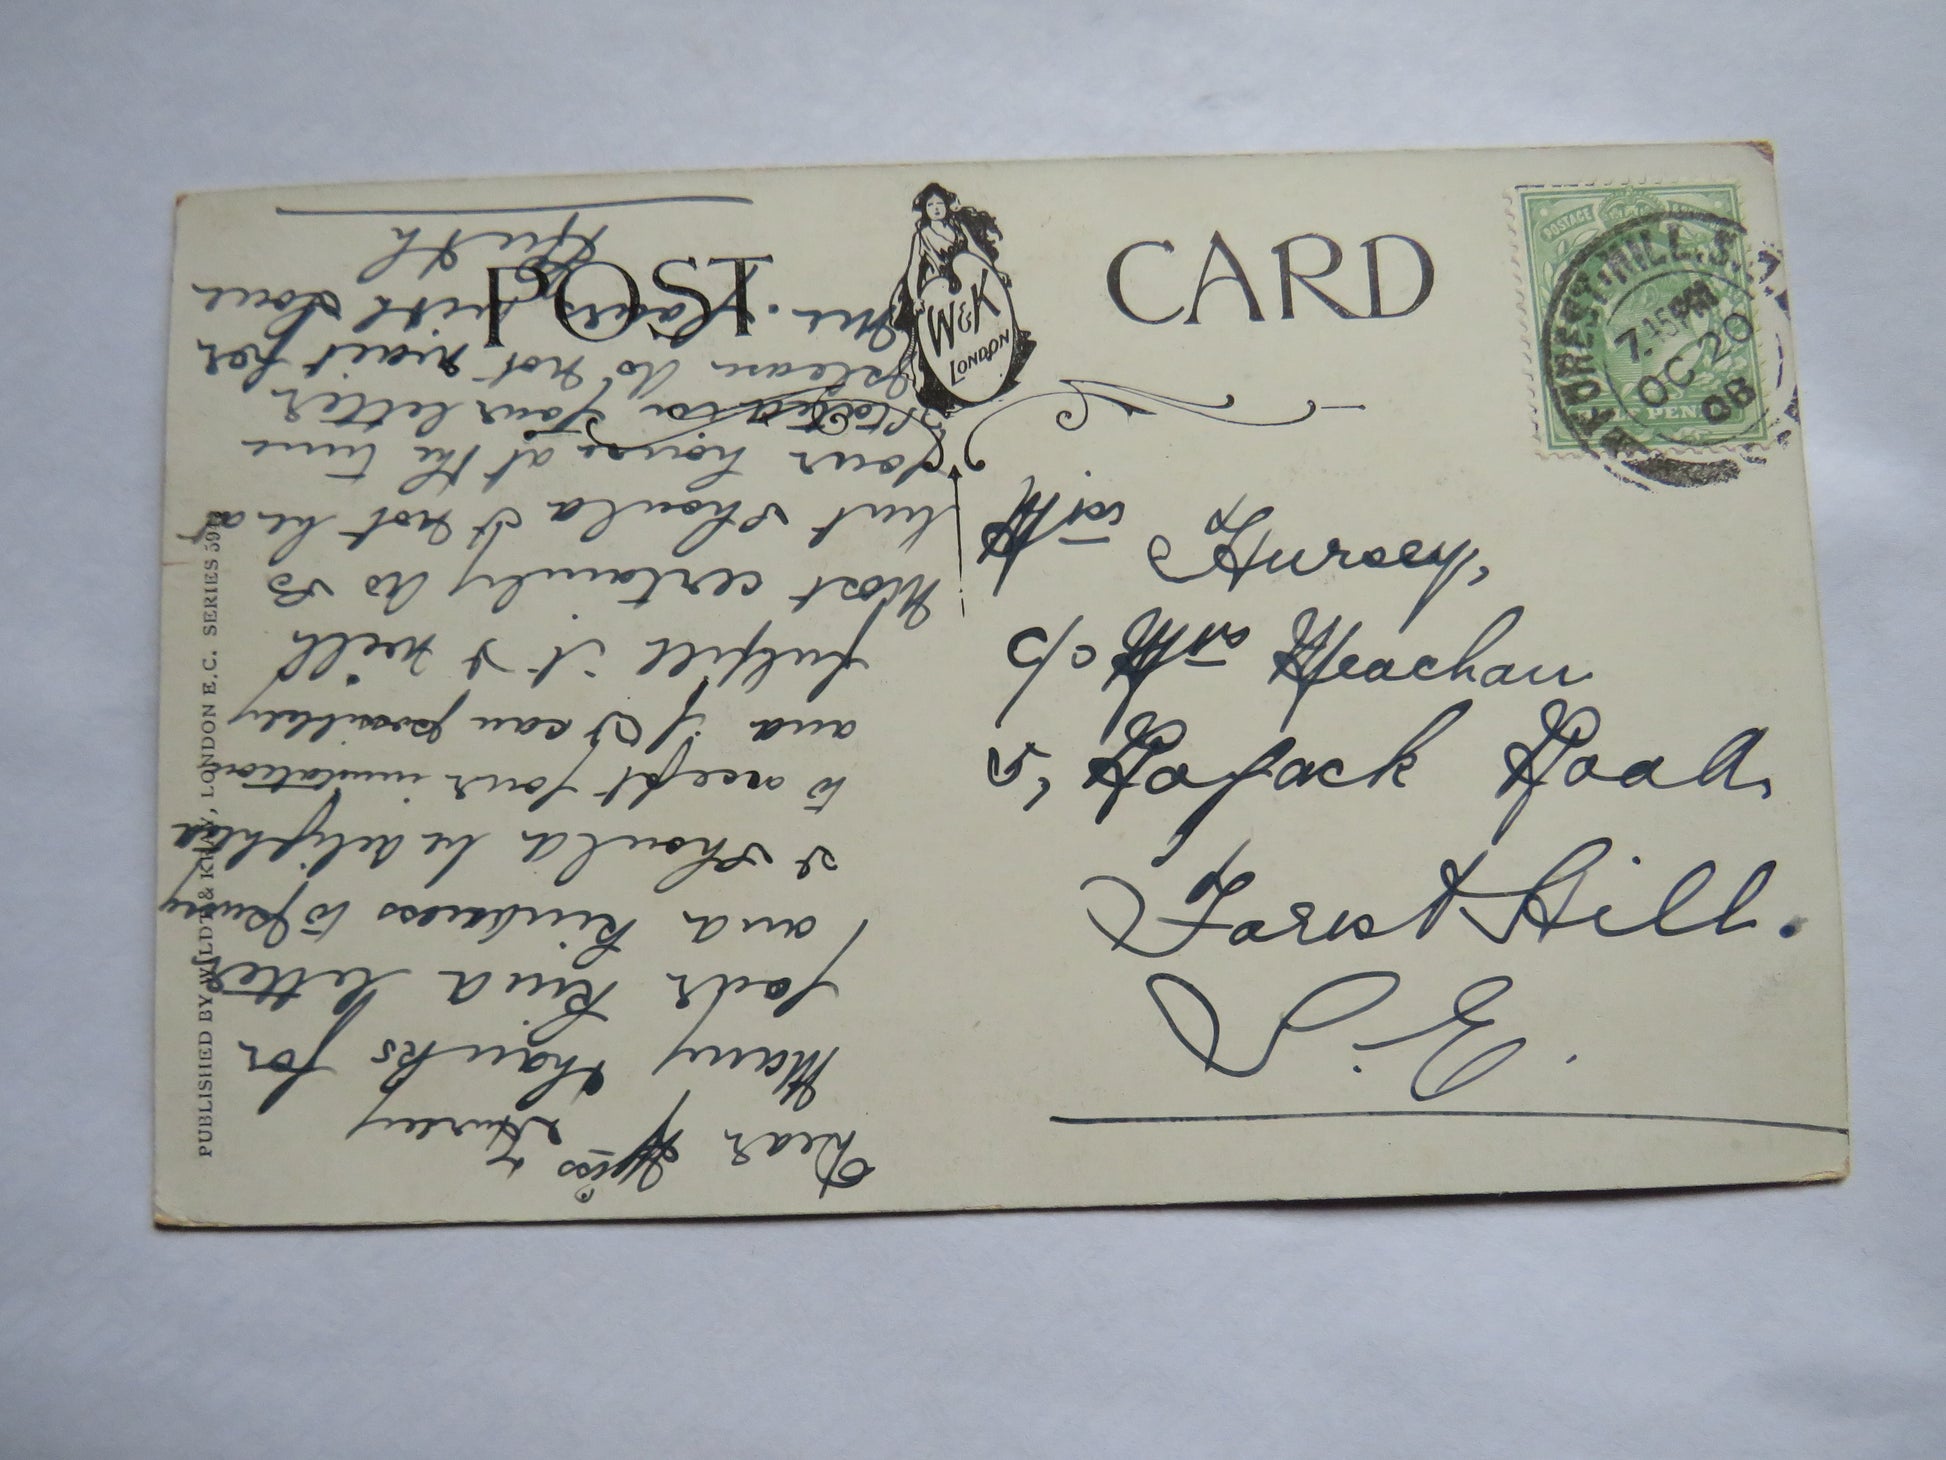 POST CARD
W&K
LONDON
POSTAGE
FOREST HILL. S.
7.15 PM
OC 20
08
Miss F Hursey,
c/o Mrs Meachan
5, Rojack Road,
Forest Hill.
S.E.
Dear Miss Hursey
Many thanks for
your kind letter
and kindness to
I should be delighted
to accept your invitation
and if I can possibly
fulfill it I will
most certainly do so
but should I not be at
your house at the time
stated in your letter
please do not wait for
me. Yours with love
PUBLISHED BY WILDT & KRAY, LONDON E.C. SERIES